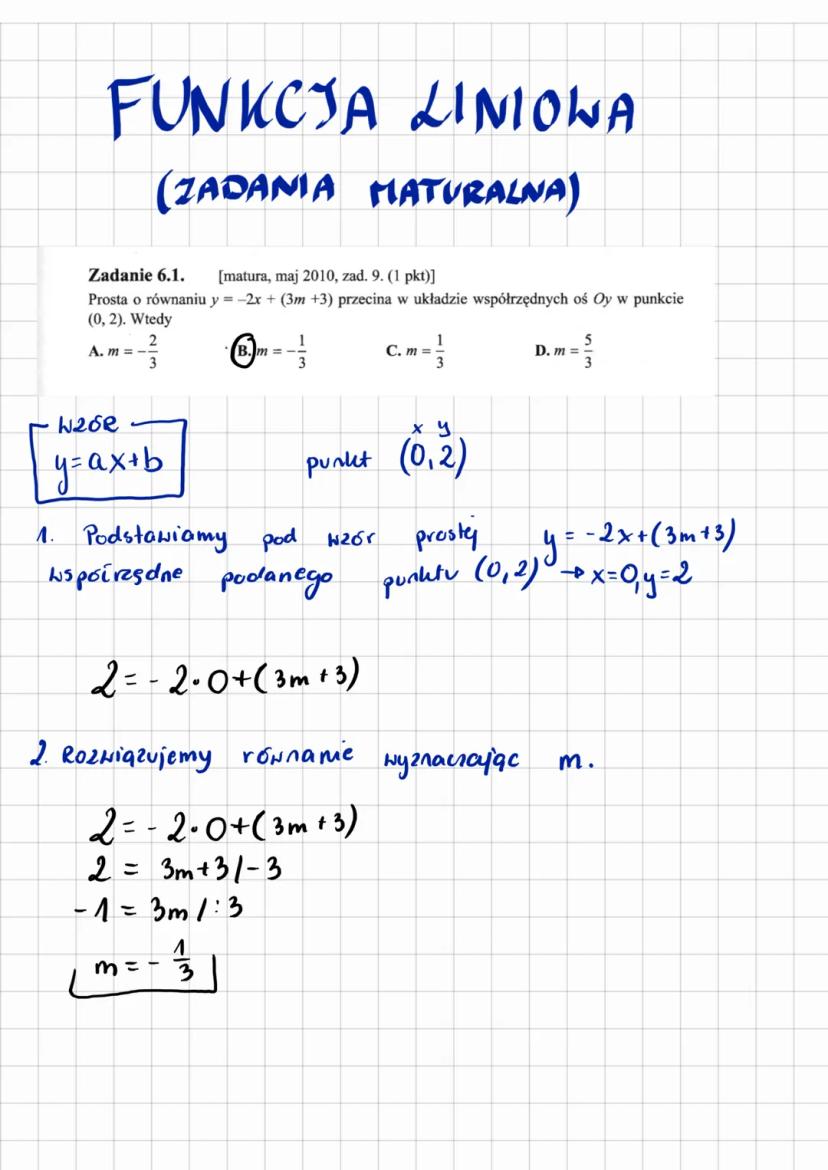 FUNKCJA LINIOWA
(ZADANIA MATURALNA)
Zadanie 6.1. [matura, maj 2010, zad. 9. (1 pkt)]
Prosta o równaniu y = –2x + (3m +3) przecina w układzie współrzędnych oś Oy w punkcie
(0, 2). Wtedy
A. m = -2/3 B. m = -1/3 C. m = 1/3 D. m = 5/3
WZÓR
y=ax+b
x y
punkt (0,2)
1. Podstawiamy pod wzór prostej y = -2x+(3m+3)
współrzędne podanego punktu (0,2) → x=0, y=2
2 = -2·0+(3m+3)
2. Rozwiązujemy równanie wyznaczając m.
2 = -2·0+(3m+3)
2 = 3m+3 /-3
-1 = 3m /:3
m = -1/3